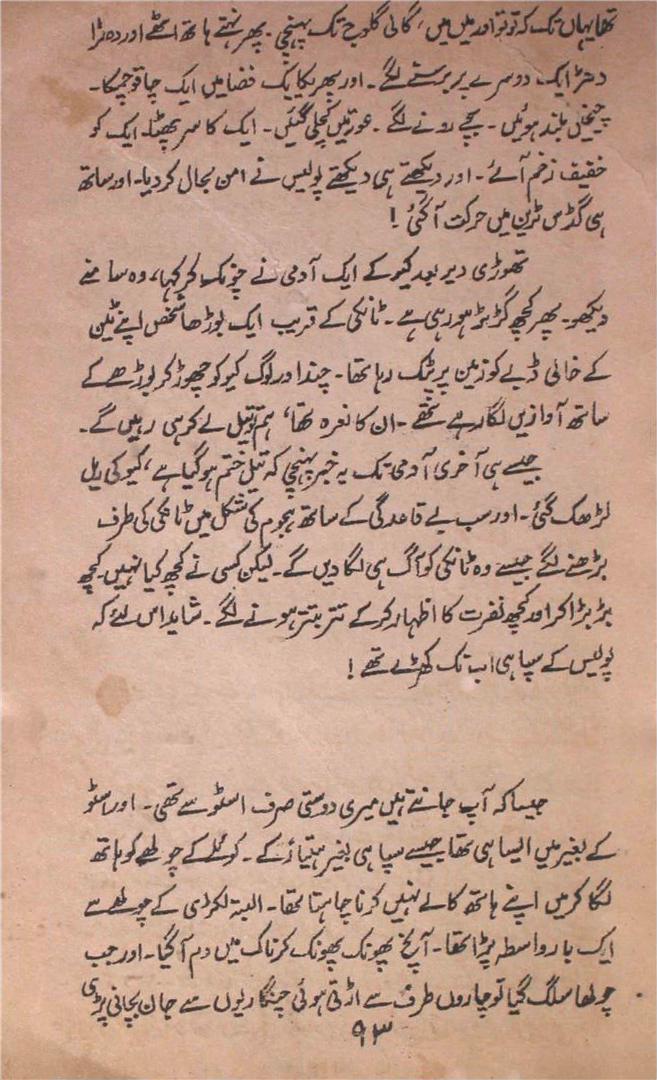 تھا یہاں تک کہ تو تو اور میں میں، گالی گلوج تک پہنچی۔ پھر نہتے ہاتھ اٹھے اور دھڑا
دھڑ ایک دوسرے پر برسنے لگے۔ اور پھر یکایک فضا میں ایک چاقو چمکا۔
چیخیں بلند ہوئیں۔ بچے رونے لگے۔ عورتیں کچلی گئیں۔ ایک کا سر پھٹا۔ ایک کو
خفیف زخم آئے۔ اور دیکھتے ہی دیکھتے پولیس نے امن بحال کر دیا۔ اور ساتھ
ہی گڈس ٹرین میں حرکت آ گئی!
تھوڑی دیر بعد کیو کے ایک آدمی نے چونک کر کہا، وہ سامنے
دیکھو۔ پھر کچھ گڑبڑ ہو رہی ہے۔ ٹانکی کے قریب ایک بوڑھا شخص اپنے ٹین
کے خالی ڈبے کو زمین پر پٹک رہا تھا۔ چند اور لوگ کیو کو چھوڑ کر بوڑھے کے
ساتھ آوازیں لگا رہے تھے۔ ان کا نعرہ تھا، ہم تو تیل لے کر ہی رہیں گے۔
جیسے ہی آخری آدمی تک یہ خبر پہنچی کہ تیل ختم ہو گیا ہے، کیو کی ریل
لڑھک گئی۔ اور سب بے قاعدگی کے ساتھ ہجوم کی شکل میں ٹانکی کی طرف
بڑھنے لگے جیسے وہ ٹانکی کو آگ ہی لگا دیں گے۔ لیکن کسی نے کچھ کیا نہیں۔ کچھ
بڑبڑا کر اور کچھ نفرت کا اظہار کر کے تتر بتر ہونے لگے۔ شاید اس لئے کہ
پولیس کے سپاہی اب تک کھڑے تھے!
جیسا کہ آپ جانتے ہیں میری دوستی صرف اسٹو سے تھی۔ اور اسٹو
کے بغیر میں ایسا ہی تھا جیسے سپاہی بغیر ہتیار کے۔ کوئلے کے چولھے کو ہاتھ
لگا کر میں اپنے ہاتھ کالے نہیں کرنا چاہتا تھا۔ البتہ لکڑی کے چولھے سے
ایک بار واسطہ پڑا تھا۔ آنچ پھونک پھونک کر ناک میں دم آ گیا۔ اور جب
چولھا سلگ گیا تو چاروں طرف سے اڑتی ہوئی چنگاریوں سے جان بچانی پڑی
۹۳